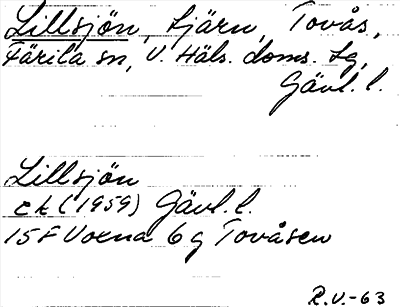 Lillsjön, tjärn, Tovås,
Färila sn, V. Häls. doms. tg,
Gävl. l.
Lillsjön
ek (1959) Gävl. l.
15F Voxna 6g Tovåsen
R.V.-63